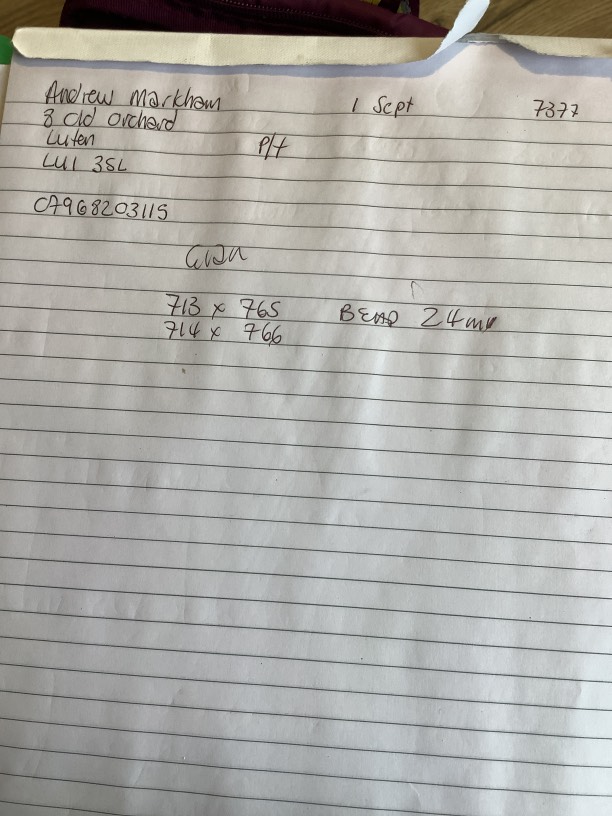 Andrew Markham 1 Sept 7377
8 Old Orchard
Luton P/t
LU1 3SL
07968203115
713 x 765 BEAD 24mm
714 x 766